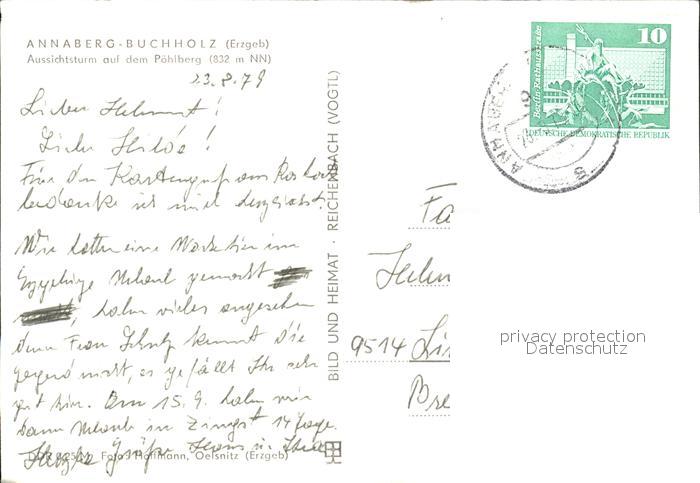 ANNABERG-BUCHHOLZ (Erzgeb)
Aussichtsturm auf dem Pöhlberg (832 m NN)
23.8.79
Lieber Helmut!
Liebe Hilde!
Für den Kartengruß aus
bedanke ich mich herzlichst.
Wir hatten eine Woche hier im
Erzgebirge Urlaub gemacht
, haben vieles angesehen
denn Frau kennt die
gegend nicht, es gefällt Ihr sehr
gut hier. Am 15.9. haben wir
dann Urlaub in Zingst 14 Tage.
Herzliche Grüße Hans u.
Foto: Hoffmann, Oelsnitz (Erzgeb)
BILD UND HEIMAT · REICHENBACH (VOGTL)
10
Berlin Rathausstraße
DEUTSCHE DEMOKRATISCHE REPUBLIK
Fa
Helm
9514
privacy protection
Datenschutz
Bre